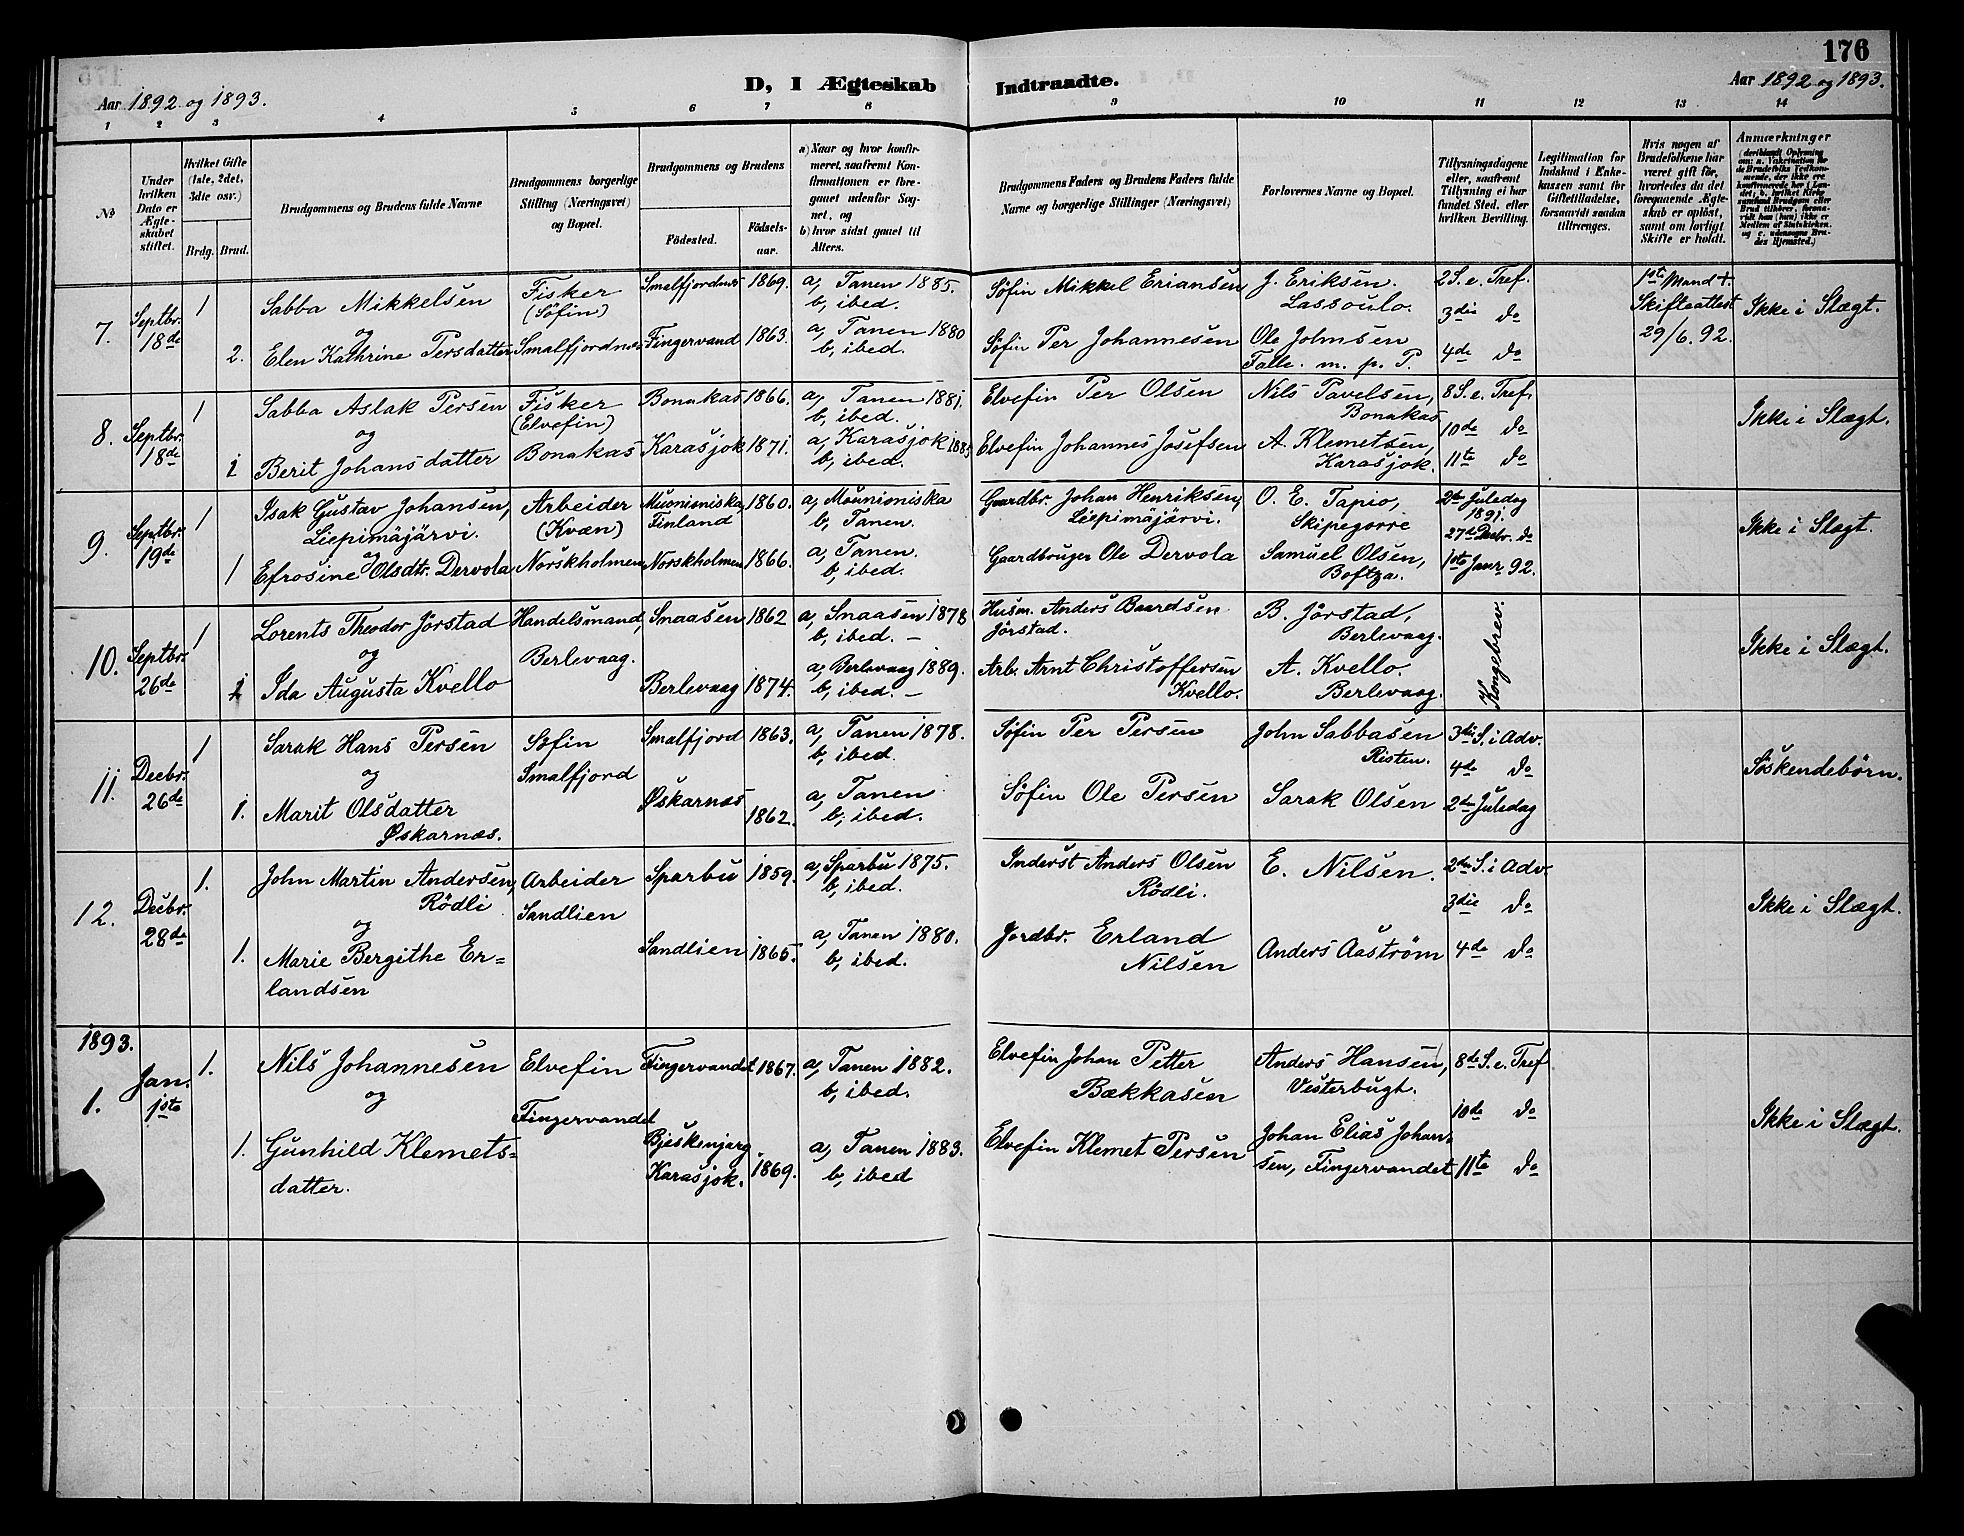 176
D, I Ægteskab Indtraadte.
Aar 1892 og 1893.
Aar 1892 og 1893.
1 2 3 4 5 6 7 8 9 10 11 12 13 14
№
Under hvilken Dato er Ægteskabet stiftet.
Hvilket Gifte (1ste, 2det, 3die osv.)
Brdg. Brud.
Brudgommens og Brudens fulde Navne
Brudgommens borgerlige Stilling (Næringsvei) og Bopæl.
Brudgommens og Brudens
Fødested.
Fødsels-aar.
a) Naar og hvor konfirmeret, saafremt Konfirmationen er foregaaet udenfor Sognet, og
b) hvor sidst gaaet til Alters.
Brudgommens Faders og Brudens Faders fulde Navne og borgerlige Stillinger (Næringsvei)
Forlovernes Navne og Bopæl.
Tillysningsdagene eller, saafremt Tillysning ei har fundet Sted, efter hvilken Bevilling.
Legitimation for Indskud i Enkekassen samt for Giftetilladelse, forsaavidt saadan tiltrænges.
Hvis nogen af Brudefolkene har været gift før, hvorledes da det foregaaende Ægteskab er opløst, samt om lovligt Skifte er holdt.
Anmærkninger
7. Septbr. 18de 1
Sabba Mikkelsen
og
2. Elen Kathrine Persdatter
Fisker
(Søfin)
Smalfjordnæs
Smalfjordnæs 1869.
Fingervand 1863.
a, Tanen 1885.
b, ibed.
a, Tanen 1880
b, ibed.
Søfin Mikkel Eriansen
Søfin Per Johannesen
J. Eriksen.
Lassoulo.
Ole Johnsen
Talle. m. p. P.
2 S. e. Tref.
3die do
4de do
1ste Mand +.
Skifteattest
29/6. 92.
Ikke i Slægt.
8. Septbr. 18de 1
Sabba Aslak Persen
og
1 Berit Johansdatter
Fisker
(Elvefin)
Bonakas
Bonakas 1866.
Karasjok 1871.
a, Tanen 1881.
b, ibed.
a, Karasjok 1885
b, ibed.
Elvefin Per Olsen
Elvefin Johannes Josefsen
Nils Pavelsen,
Bonakas
A. Klemetsen,
Karasjok.
8 S. e. Tref.
10de do
11te do
Ikke i Slægt.
9. Septbr. 19de 1
Isak Gustav Johansen,
Liepimäjärvi.
og
1 Efrosine Olsdtr. Dervola
Arbeider
(Kvæn)
Norskholmen
Muonioniska, Finland 1860.
Norskholmen 1866.
a, Mounioniska
b, Tanen.
a, Tanen.
b, ibed.
Gaardbr. Johan Henriksen,
Liepimäjärvi.
Gaardbruger Ole Dervola
O. E. Tapio,
Skipegorre
Samuel Olsen,
Boftza.
2den Juledag
1891.
27de Decbr. do
1ste Janr 92.
Ikke i Slægt.
10. Septbr. 26de 1
Lorents Theodor Jörstad
og
1 Ida Augusta Kvello
Handelsmand,
Berlevaag.
Snaasen 1862
Berlevaag 1874.
a, Snaasen 1878
b, ibed. –
a, Berlevaag 1889.
b, ibed. –
Husm. Anders Baardsen
Jörstad.
Arb. Arnt Christoffersen
Kvello.
B. Jörstad,
Berlevaag.
A. Kvello.
Berlevaag.
Kongebrev.
Ikke i Slægt.
11. Decbr. 26de 1
Sarak Hans Persen
og
1. Marit Olsdatter
Øskarnæs.
Søfin
Smalfjord
Smalfjord 1863.
Øskarnæs 1862.
a, Tanen 1878.
b, ibed.
a, Tanen
b, ibed.
Søfin Per Persen
Søfin Ole Persen
John Sabbasen
Risten.
Sarak Olsen
3die S. i Adv.
4de do
2den Juledag
Söskendebörn.
12. Decbr. 28de 1.
John Martin Andersen,
Rödli
og
1. Marie Bergithe Er=
landsen
Arbeider
Sandlien
Sparbu 1859.
Sandlien 1865.
a, Sparbu 1875.
b, ibed.
a, Tanen 1880.
b, ibed.
Inderst Anders Olsen
Rödli.
Jordbr. Erland
Nilsen
E. Nilsen.
Anders Aaström
2den S. i Adv.
3die do
4de do
Ikke i Slægt.
1893.
1. Jan. 1ste 1.
Nils Johannesen
og
1. Gunhild Klemets=
datter.
Elvefin
Fingervandet
Fingervandet 1867.
Bjeskenjarg
Karasjok. 1869.
a, Tanen 1882.
b, ibed.
a, Tanen 1883.
b, ibed
Elvefin Johan Petter
Bækkasen
Elvefin Klemet Persen
Anders Hansen,
Vesterbugt.
Johan Elias Johan=
sen, Fingervandet
8de S. e. Tref
10de do
11te do
Ikke i Slægt.